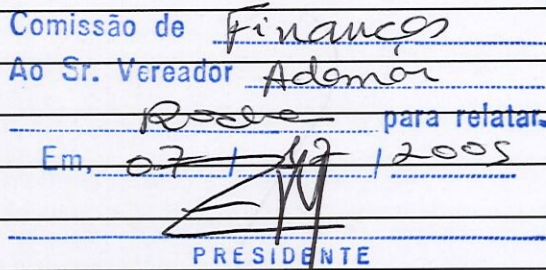 Comissão de Finanças
Ao Sr. Vereador Ademar
Rocha para relatar.
Em, 07 / 12 / 2005
PRESIDENTE